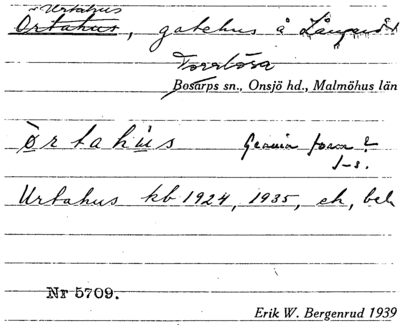 Urtahus
Örtahus, gatehus å
Torrlösa
Bosarps sn., Onsjö hd., Malmöhus län
örtahús Genuin form?
Urtahus kb 1924, 1935, ek, bel
Nr 5709.
Erik W. Bergenrud 1939